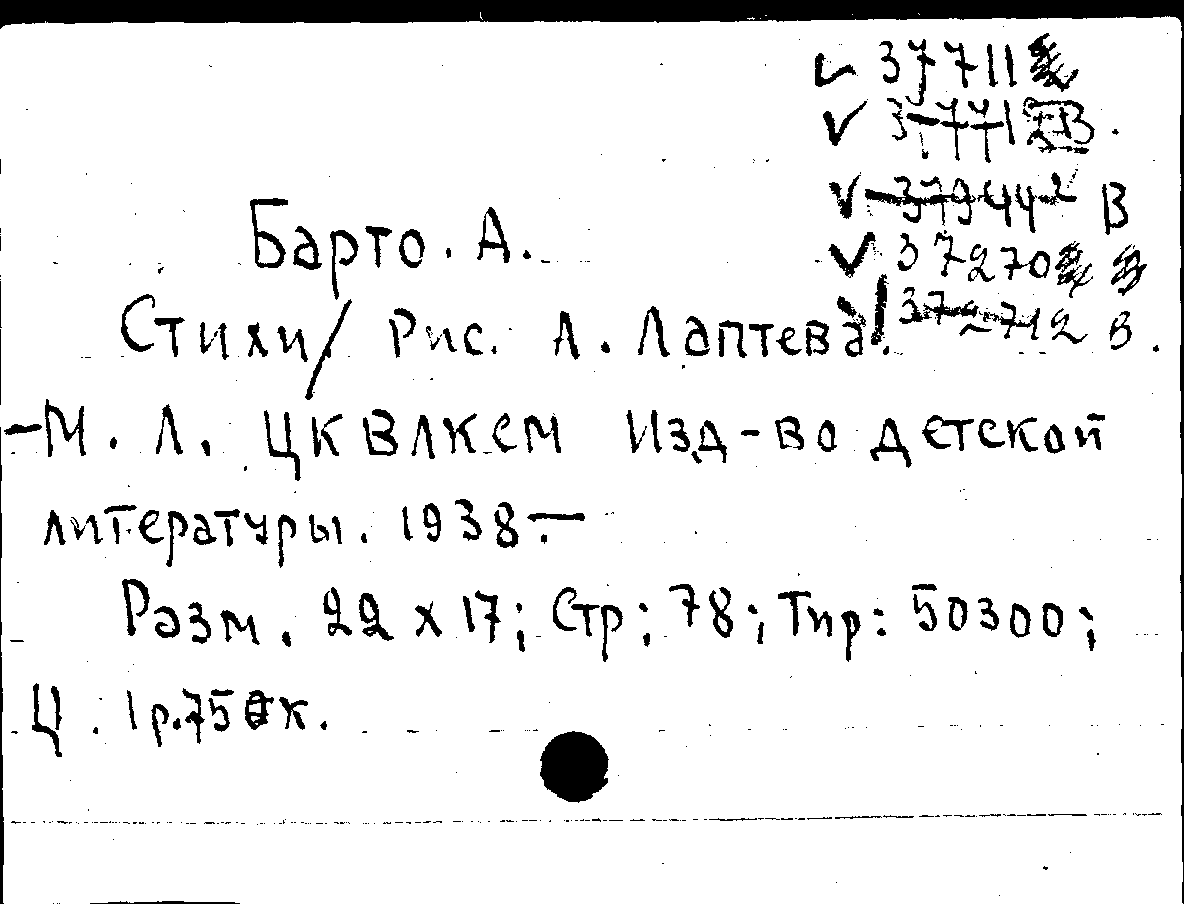 37711
37712 В.
37944² В
37270
Барто. А.
372712 В.
Стихи/ Рис. А. Лаптева.
-М. Л. ЦК ВЛКСМ Изд-во детской
литературы. 1938.—
Разм. 22 х 17; Стр: 78; Тир: 50300;
Ц. 1р.75 к.